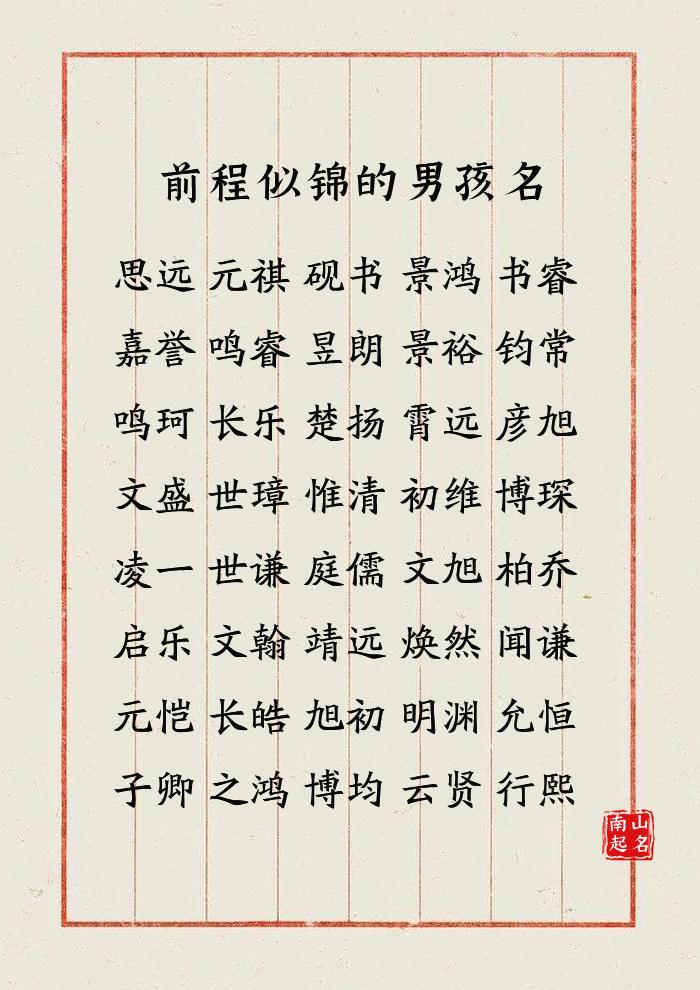 前程似锦的男孩名
思远 元祺 砚书 景鸿 书睿
嘉誉 鸣睿 昱朗 景裕 钧常
鸣珂 长乐 楚扬 霄远 彦旭
文盛 世璋 惟清 初维 博琛
凌一 世谦 庭儒 文旭 柏乔
启乐 文翰 靖远 焕然 闻谦
元恺 长皓 旭初 明渊 允恒
子卿 之鸿 博均 云贤 行熙
南山
起名